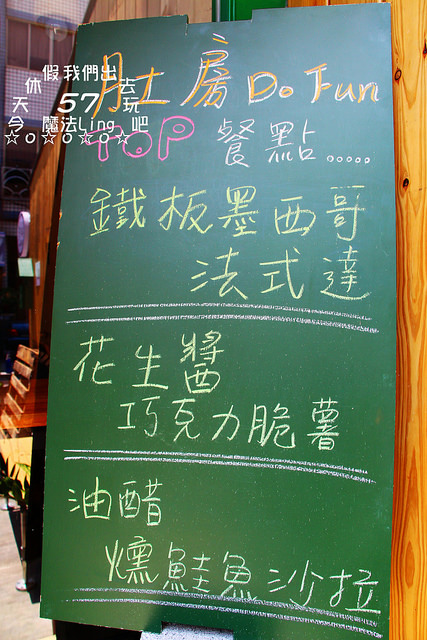 肚房 Do Fun
TOP 餐點.....
鐵板墨西哥
法式達
花生醬
巧克力脆薯
油醋
燻鮭魚沙拉
假我們出去玩吧
休 57
天
今 魔法Ling
☆o☆o☆o☆o☆